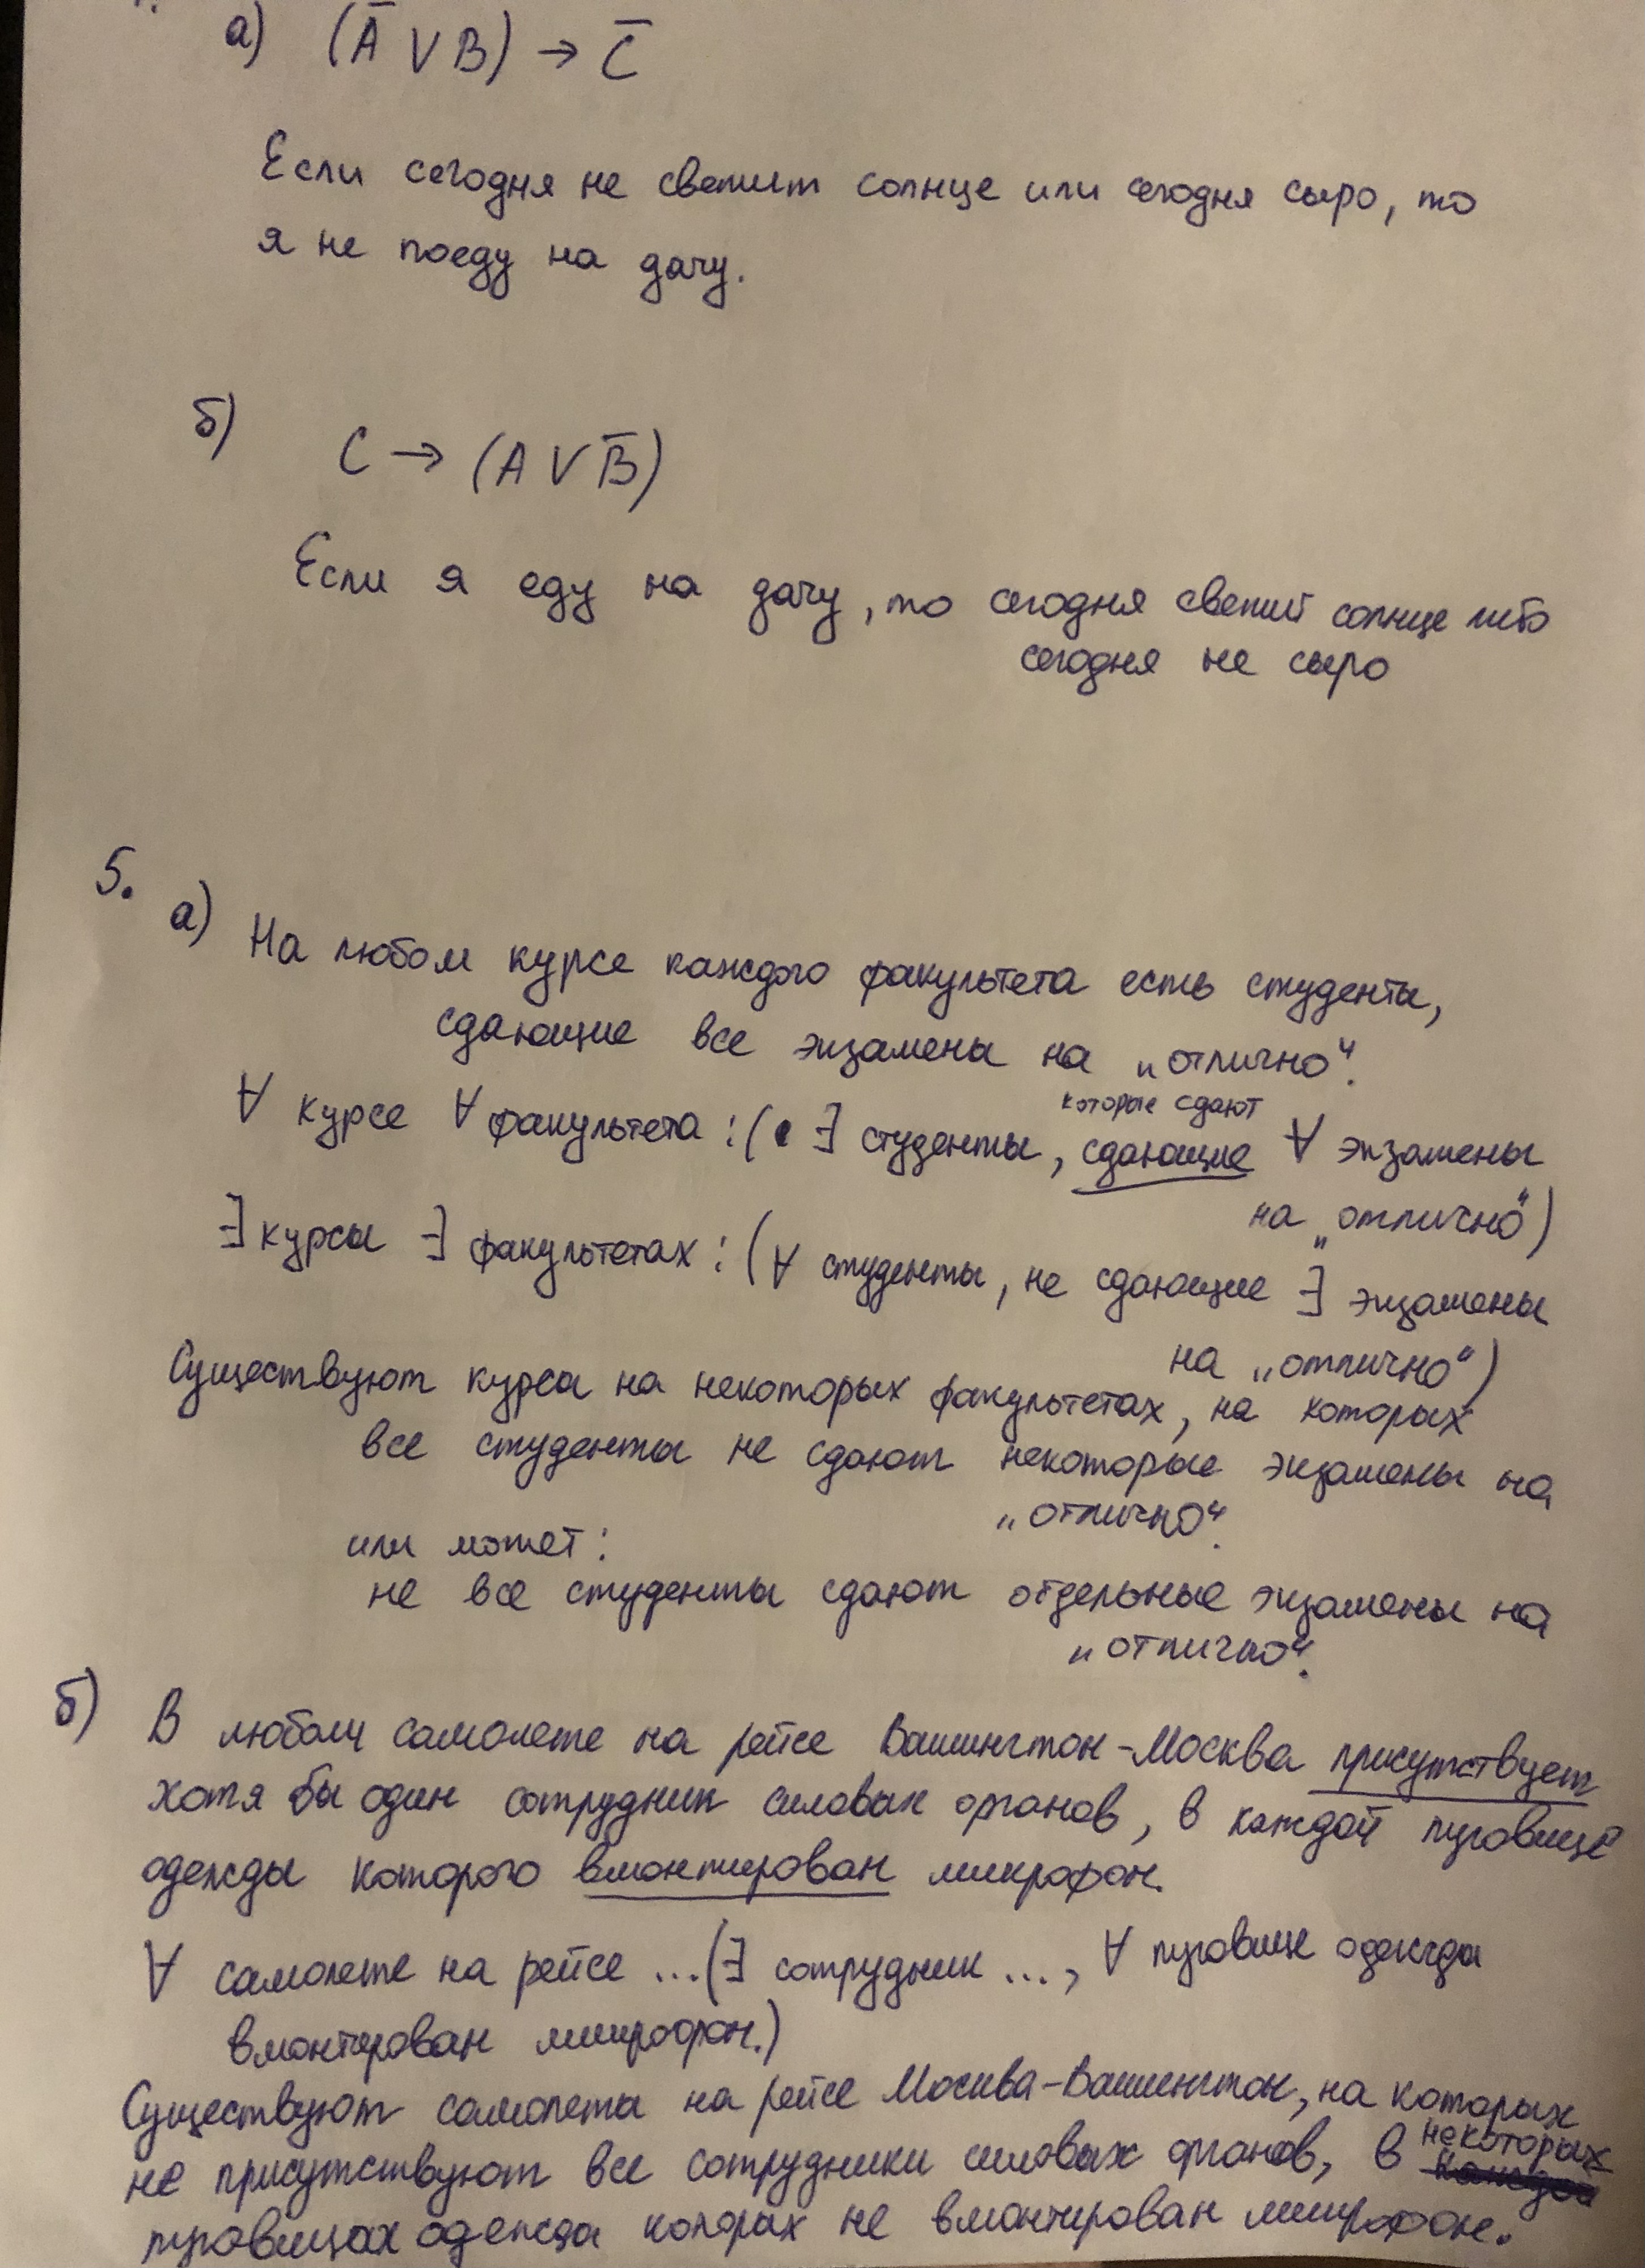 а) (A̅ ∨ B) → C̅
Если сегодня не светит солнце или сегодня сыро, то
я не поеду на дачу.
б)
C → (A ∨ B̅)
Если я еду на дачу, то сегодня светит солнце либо
сегодня не сыро
5.
а) На любом курсе каждого факультета есть студенты,
сдающие все экзамены на „отлично“.
которые сдают
∀ курсе ∀ факультета : ( ∃ студенты, сдающие ∀ экзамены
на „отлично“)
∃ курсы ∃ факультетах : (∀ студенты, не сдающие ∃ экзамены
на „отлично“)
Существуют курсы на некоторых факультетах, на которых
все студенты не сдают некоторые экзамены на
„отлично“.
или может :
не все студенты сдают отдельные экзамены на
„отлично“.
б) В любом самолете на рейсе Вашингтон-Москва присутствует
хотя бы один сотрудник силовых органов, в каждой пуговице
одежды которого вмонтирован микрофон.
∀ самолете на рейсе ...(∃ сотрудник ..., ∀ пуговице одежды
вмонтирован микрофон.)
Существуют самолеты на рейсе Москва-Вашингтон, на которых
не присутствуют все сотрудники силовых органов, в некоторых
пуговицах одежды которых не вмонтирован микрофон.